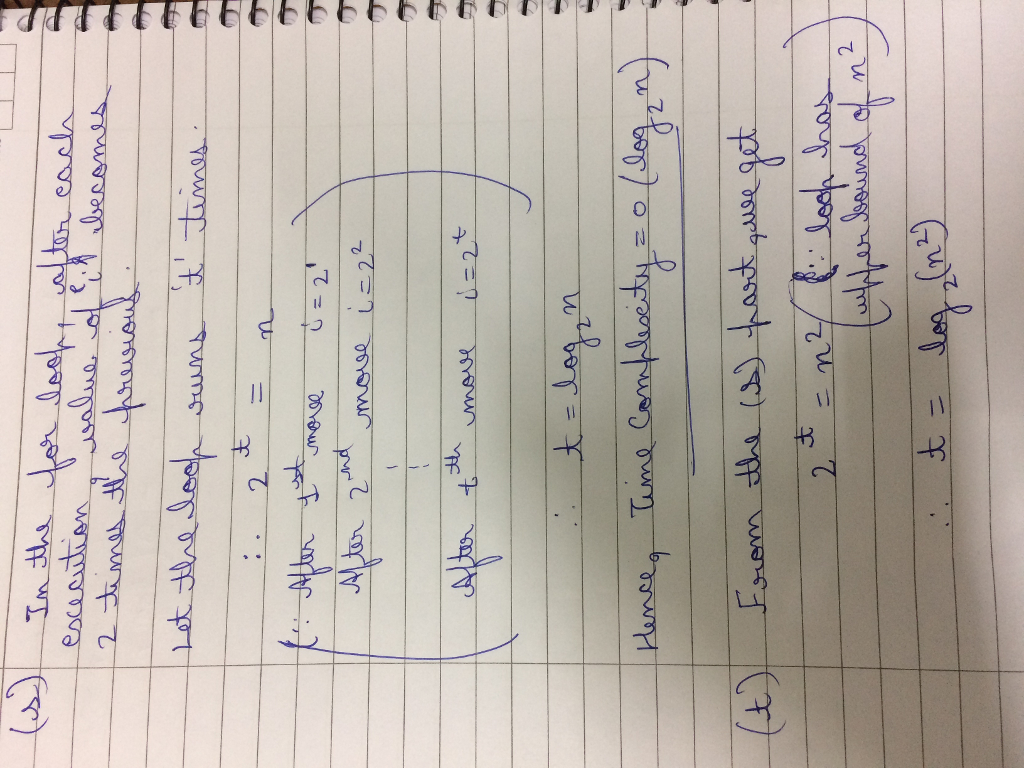 (s) In the for loop, after each
execution, value of 'i' becomes
2 times the previous.
Let the loop runs 't' times.
∴ 2^t = n
(∵ After 1st move i = 2^1
After 2nd move i = 2^2
After tth move i = 2^t)
∴ t = log₂n
Hence, Time Complexity = O(log₂n)
(t) From the (s) part, we get
2^t = n^2 (∵ loop has
upper bound of n^2)
∴ t = log₂(n^2)